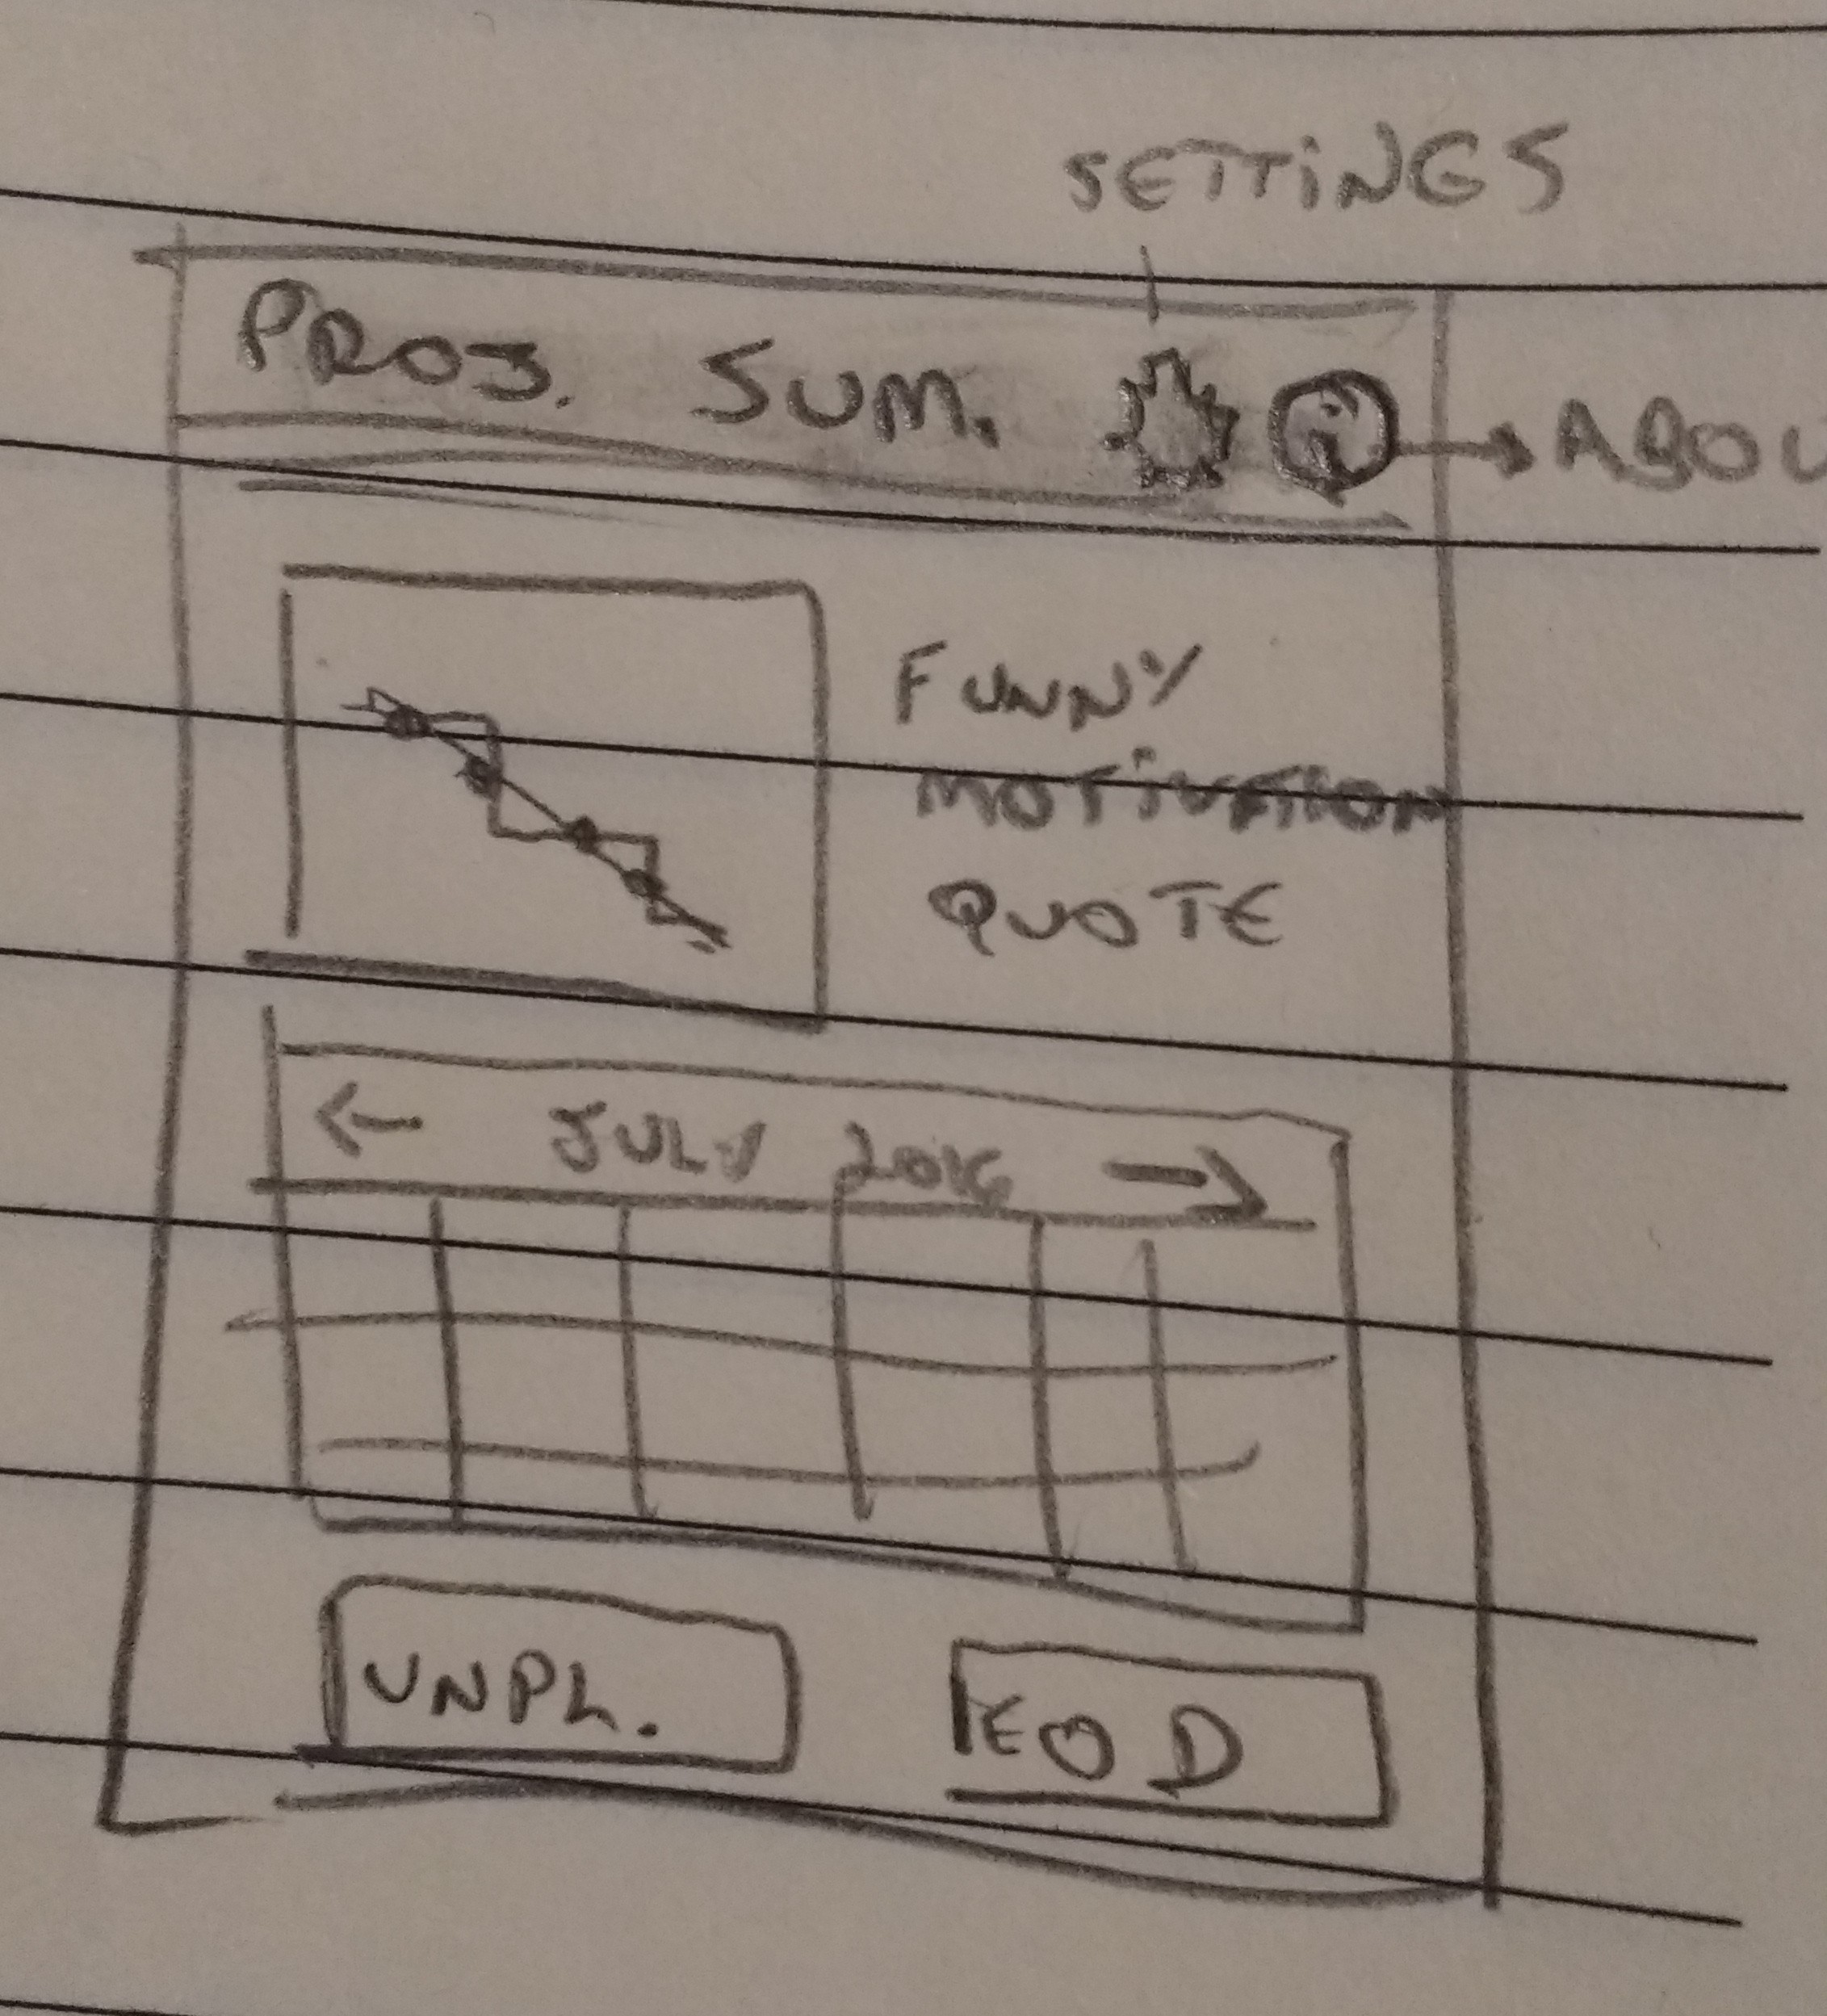 SETTINGS
PROJ. SUM. i → ABOU
FUNNY
MOTIVATION
QUOTE
← JULY 2016 →
UNPL.
EOD